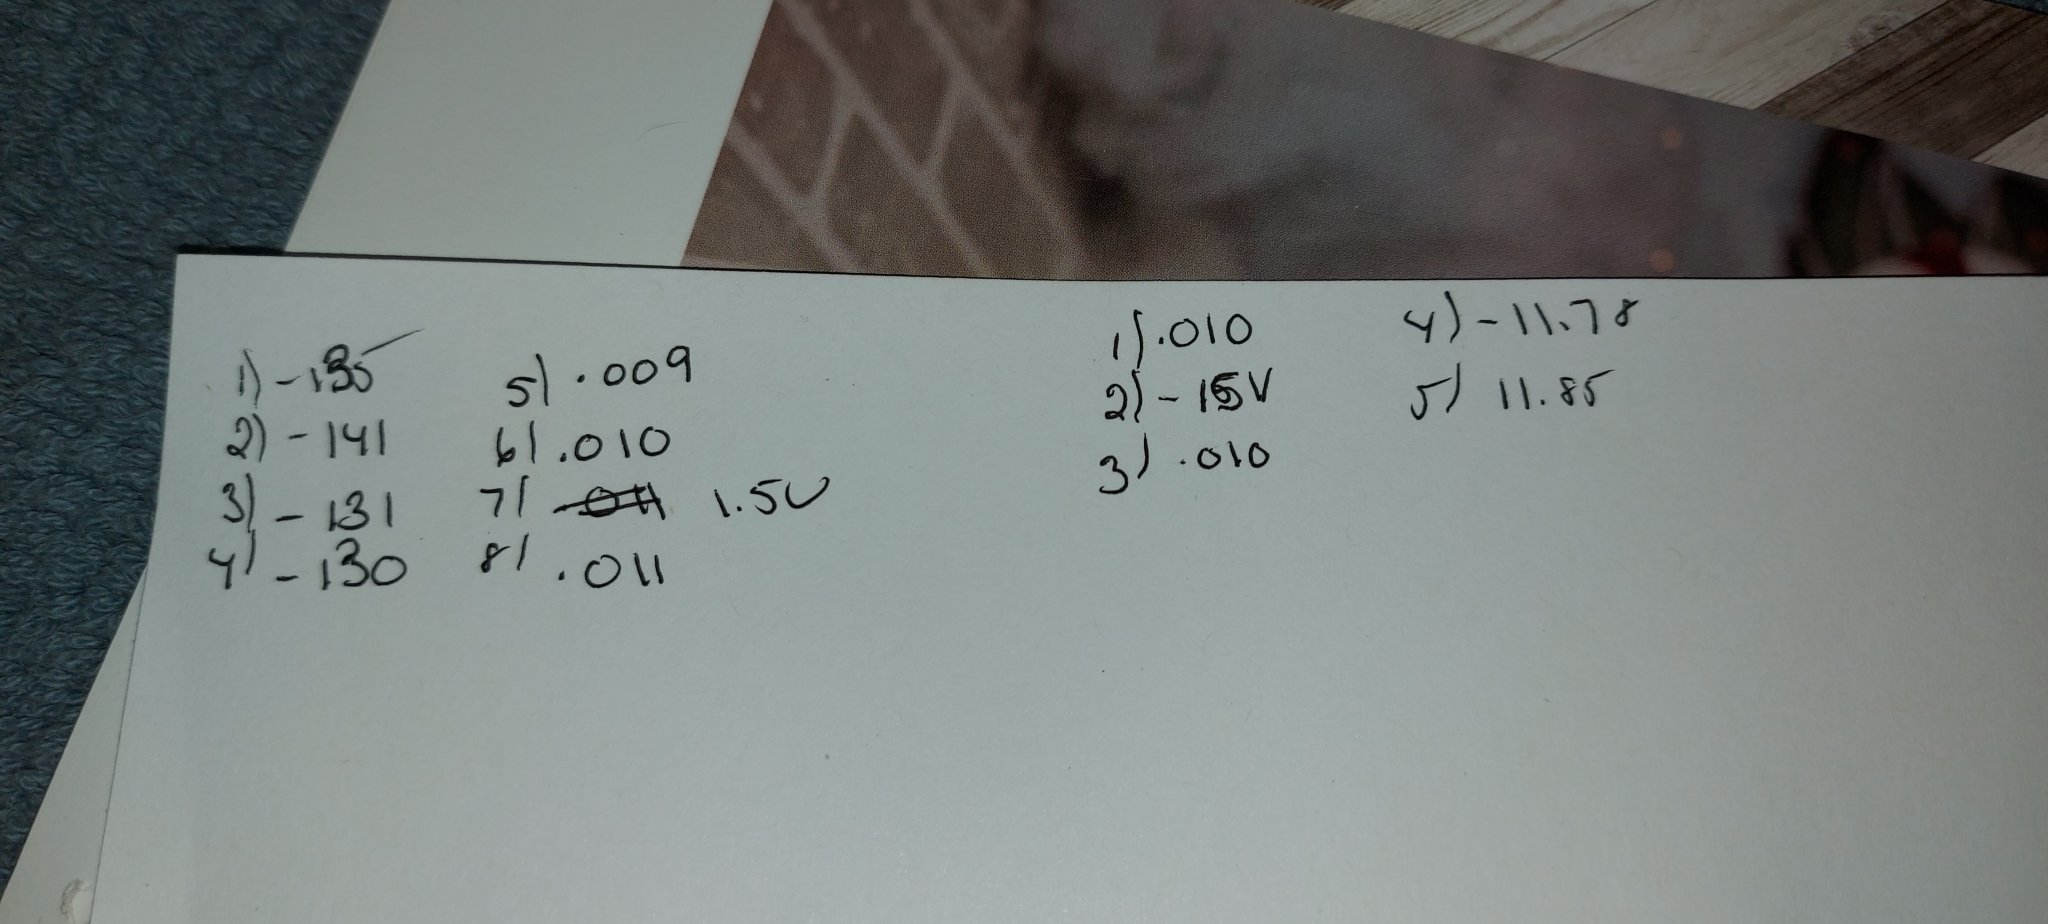 1) -135
2) -141
3) -131
4) -130
5) .009
6) .010
7) .011 1.5V
8) .011
1) .010
2) -15V
3) .010
4) -11.78
5) 11.85